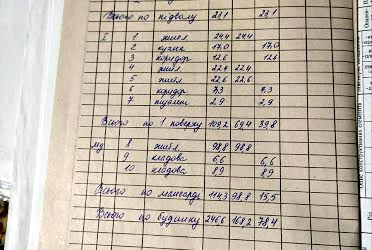 Всього по підвалу 23,1 23,1
І 1 житл. 24,4 24,4
2 кухня 17,0 17,0
3 коридор 12,6 12,6
4 житл. 22,4 22,4
5 житл. 22,6 22,6
6 коридор 7,3 7,3
7 туалет 2,9 2,9
Всього по 1 поверху 109,2 69,4 39,8
мд 8 житл. 98,8 98,8
9 кладова 6,6 6,6
10 кладова 8,9 8,9
Всього по мансарді 114,3 98,8 15,5
Всього по будинку 246,6 168,2 78,4